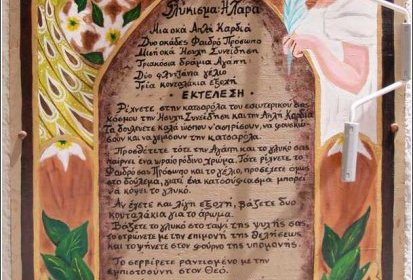 Γλύκισμα: Η Χαρά
Μια οκά Απλή Καρδιά
Δυο οκάδες Φαιδρό Πρόσωπο
Μισή οκά Ήσυχη Συνείδηση
Τριακόσια δράμια Αγάπη
Δυο φλυτζάνια γέλιο
Τρία κουταλάκια εξοχή
• ΕΚΤΕΛΕΣΗ •
Ρίχνετε στην κατσαρόλα του εσωτερικού σας
κόσμου την Ήσυχη Συνείδηση και την Απλή Καρδιά
Τα δουλεύετε καλά ώσπου ν' ασπρίσουν, να φουσκώ-
σουν και να γεμίσουν την κατσαρόλα.
Προσθέτετε τότε την Αγάπη και το γλυκό σας
παίρνει ένα ωραίο ρόδινο χρώμα. Τότε ρίχνετε το
Φαιδρό σας Πρόσωπο και το γέλιο, προσέχετε όμως
στο δούλεμα, γιατί ένα κατσούφιασμα μπορεί
να κόψει το γλυκό.
Αν έχετε και λίγη εξοχή, βάζετε δυο
κουταλάκια για το άρωμα.
Βάζετε το γλυκό στο ταψί της ψυχής σας
το στρώνετε με την επιμονή της θελήσεως
και το ψήνετε στον φούρνο της υπομονής.
Το σερβίρετε ραντισμένο με την
εμπιστοσύνη στον Θεό.